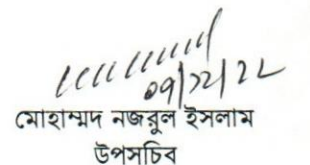 ০৭/১২/২২
মোহাম্মদ নজরুল ইসলাম
উপসচিব